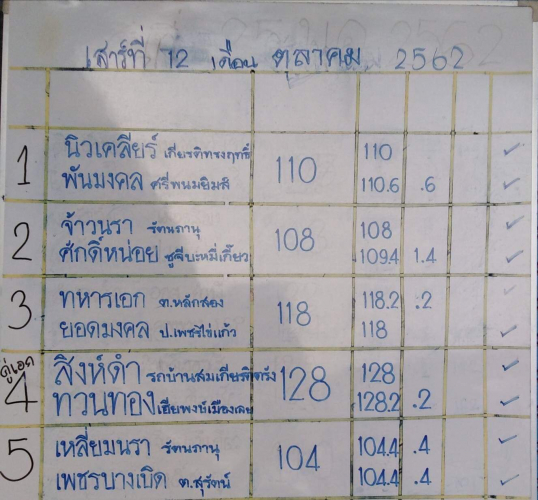 เสาร์ที่ 12 เดือน ตุลาคม 2562
1
นิวเคลียร์ เกียรติทรงฤทธิ์ 110 110
พันมงคล ศรีพนมยิมส์ 110.6 .6
2
จ้าวนรา รัตนภานุ 108 108
ศักดิ์หน่อย ชูจีบะหมี่เกี๊ยว 109.4 1.4
3
ทหารเอก ต.หลักสอง 118 118.2 .2
ยอดมงคล ป.เพชรไข่แก้ว 118
คู่เอก
4
สิงห์ดำ รถบ้านสมเกียรติตรัง 128 128
ทวนทอง เฮียพงษ์เมืองเลย 128.2 .2
5
เหลี่ยมนรา รัตนภานุ 104 104.4 .4
เพชรบางเบิด ต.สุรัตน์ 104.4 .4